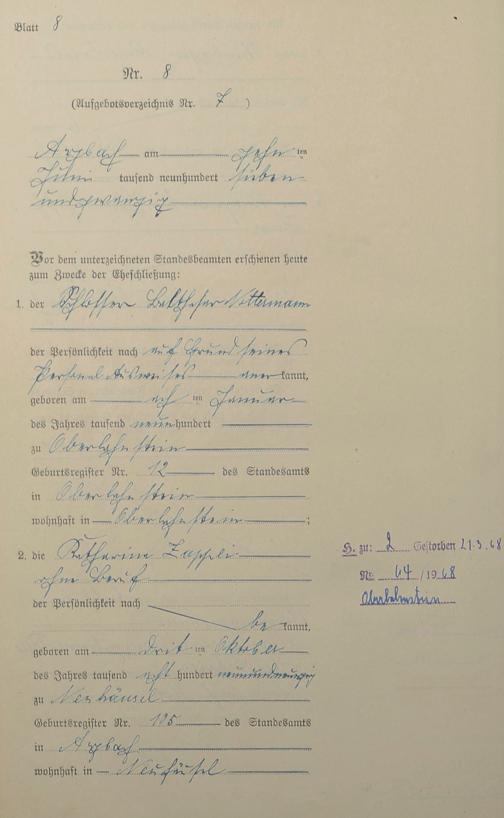 Blatt 8
Nr. 8
(Aufgebotsverzeichnis Nr. 7 )
Arzbach am zehn ten
Juni tausend neunhundert sieben-
undzwanzig
Vor dem unterzeichneten Standesbeamten erschienen heute
zum Zwecke der Eheschließung:
1. der Schlosser Balthasar
der Persönlichkeit nach auf Grund seines
Personal Ausweises aner kannt,
geboren am ten Januar
des Jahres tausend neunhundert
zu Oberlahnstein
Geburtsregister Nr. 12 des Standesamts
in Oberlahnstein
wohnhaft in Oberlahnstein ;
2. die Katharina
ohne Beruf
der Persönlichkeit nach
be kannt,
geboren am drit ten Oktober
des Jahres tausend acht hundert neunundneunzig
zu Neuhäusel
Geburtsregister Nr. 105 des Standesamts
in Arzbach
wohnhaft in Neuhäusel
H. zu: 2 Gestorben 21.3.68
Nr. 64 /1968
Oberlahnstein